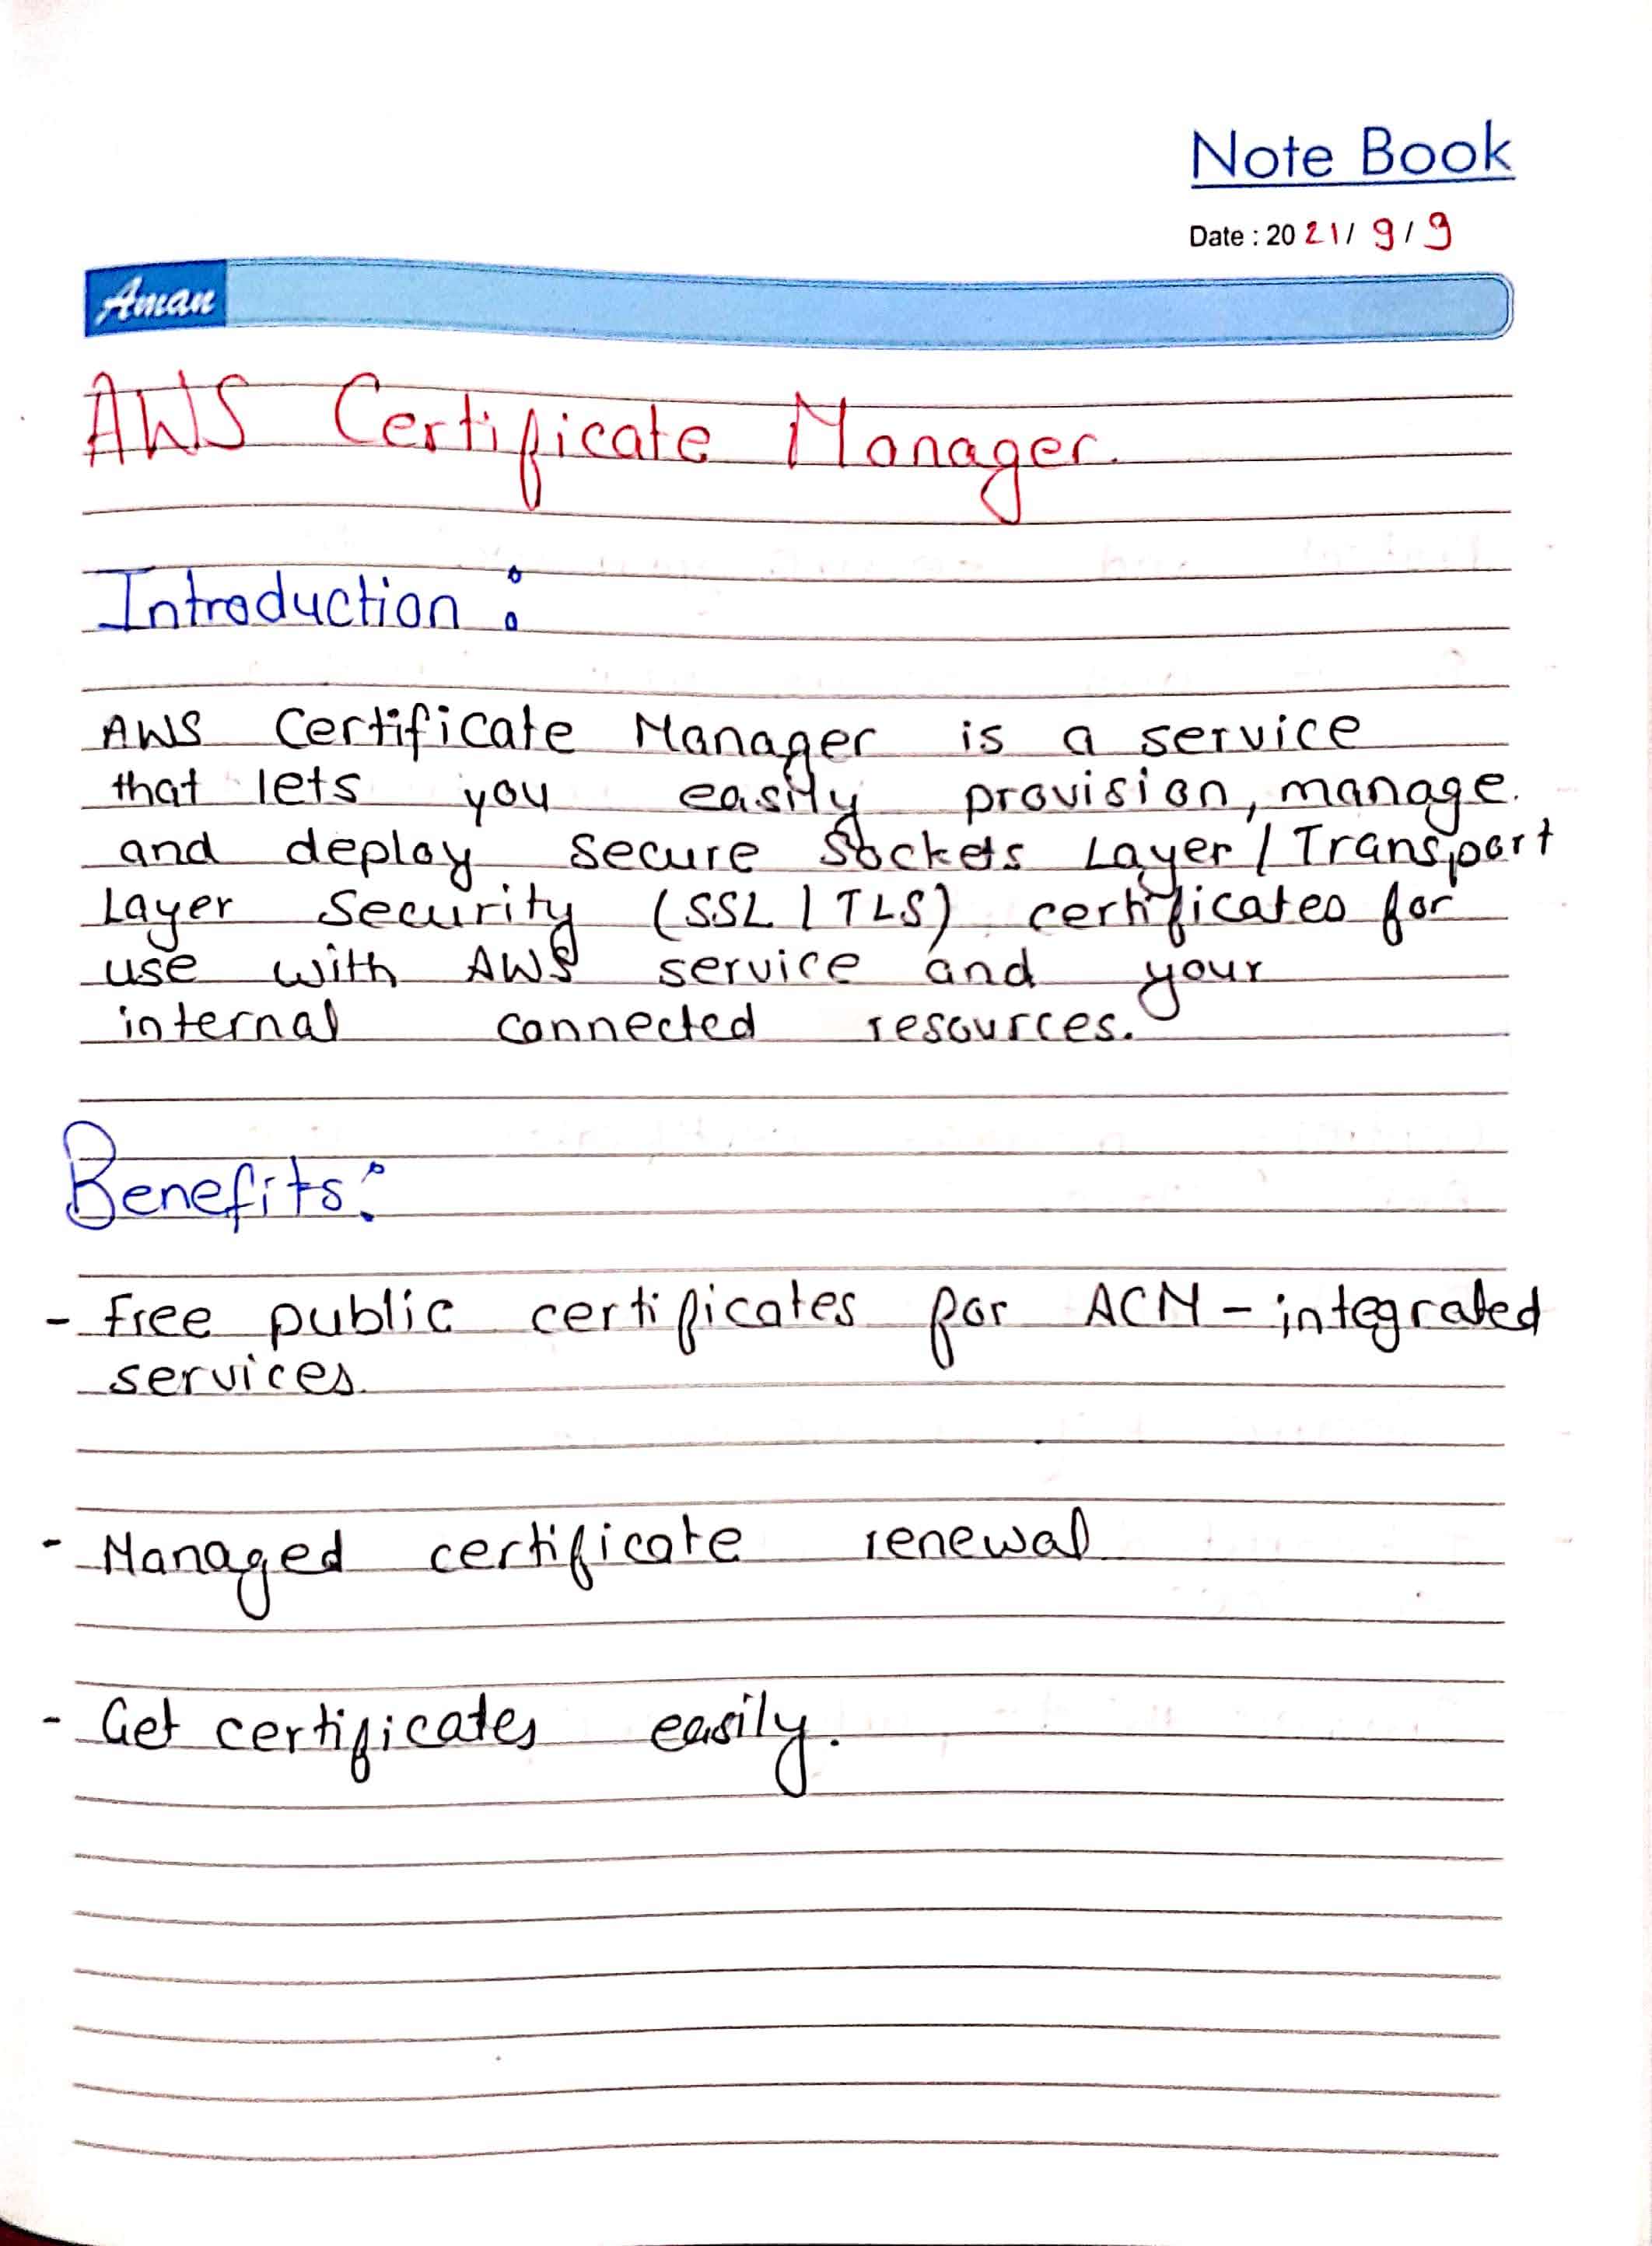 Note Book
Date : 20 21/ 9/9
Aman
AWS Certificate Manager.
Introduction :
AWS Certificate Manager is a service
that lets you easily provision, manage.
and deploy Secure Sockets Layer / Transport
Layer Security (SSL | TLS) certificates for
use with AWS service and your
internal connected resources.
Benefits:
- Free public certificates for ACM - integrated
services.
- Managed certificate renewal
- Get certificates easily.